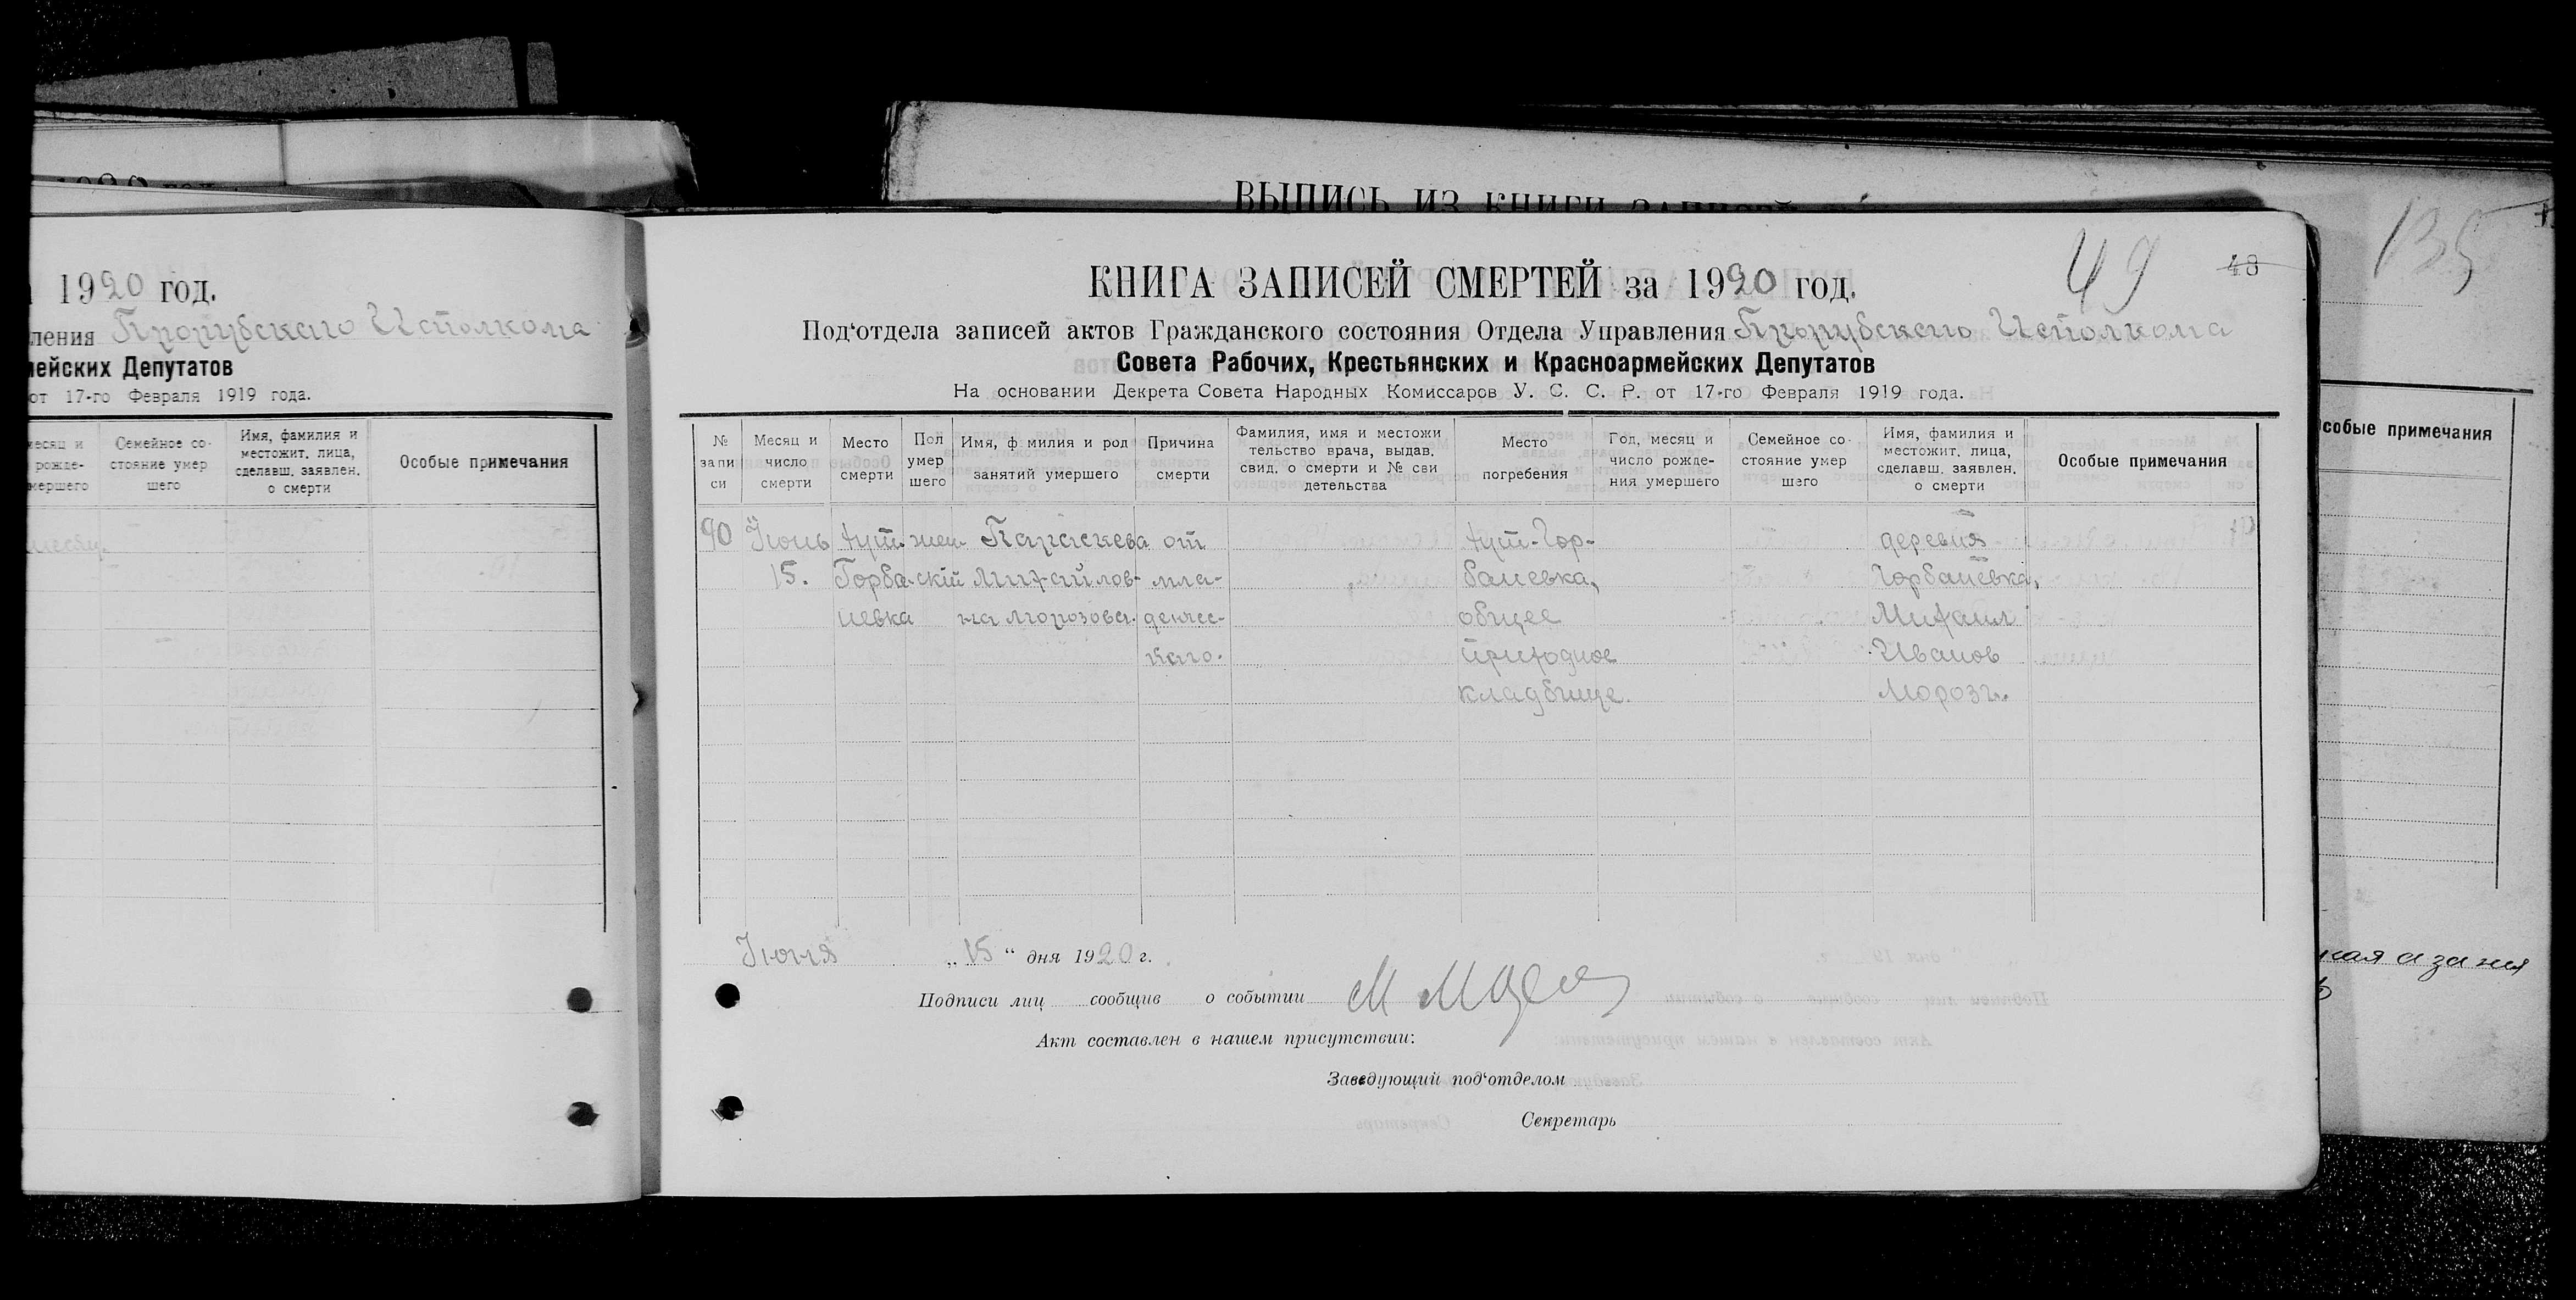 ВЫПИСЬ ИЗ КНИГИ
135
1920 год.
ления Прорубского Исполкома
мейских Депутатов
от 17-го Февраля 1919 года.
месяц и
рожде-
мершего
Семейное со-
стояние умер
шего
Имя, фамилия и
местожит. лица,
сделавш. заявлен.
о смерти
Особые примечания
месяц.
49
48
КНИГА ЗАПИСЕЙ СМЕРТЕЙ за 1920 год.
Под‘отдела записей актов Гражданского состояния Отдела Управления Прорубского Исполкома
Совета Рабочих, Крестьянских и Красноармейских Депутатов
На основании Декрета Совета Народных Комиссаров У. С. С. Р. от 17-го Февраля 1919 года.
№
запи
си
Месяц и
число
смерти
Место
смерти
Пол
умер
шего
Имя, ф милия и род
занятий умершего
Причина
смерти
Фамилия, имя и местожи
тельство врача, выдав.
свид. о смерти и № сви
детельства
Место
погребения
Год, месяц и
число рожде-
ния умершего
Семейное со-
стояние умер
шего
Имя, фамилия и
местожит. лица,
сделавш. заявлен.
о смерти
Особые примечания
90
Июнь
15.
хут.
Горба-
невка
жен-
скій
Параскева
Михайлов-
на Морозова.
от
мла-
денчес-
каго.
хут-Гор-
баневка,
общее
приходное
кладбище.
деревня
Горбаневка,
Михаил
Иванов
Мороз.
Июня „15“ дня 1920 г.
Подписи лиц сообщив о событии
Акт составлен в нашем присутствии:
Заведующий под‘отделом
Секретарь
особые примечания